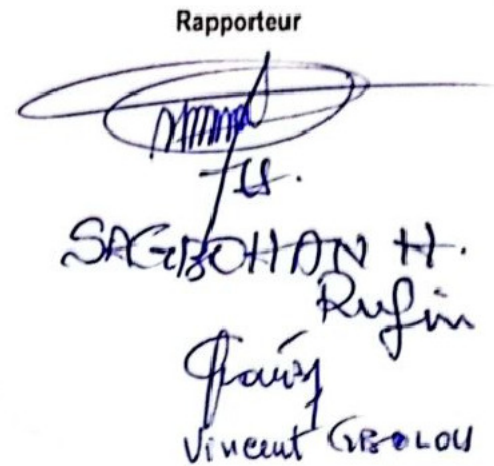 Rapporteur
SAGBOHAN H.
Rufin
Vincent GBOLOU